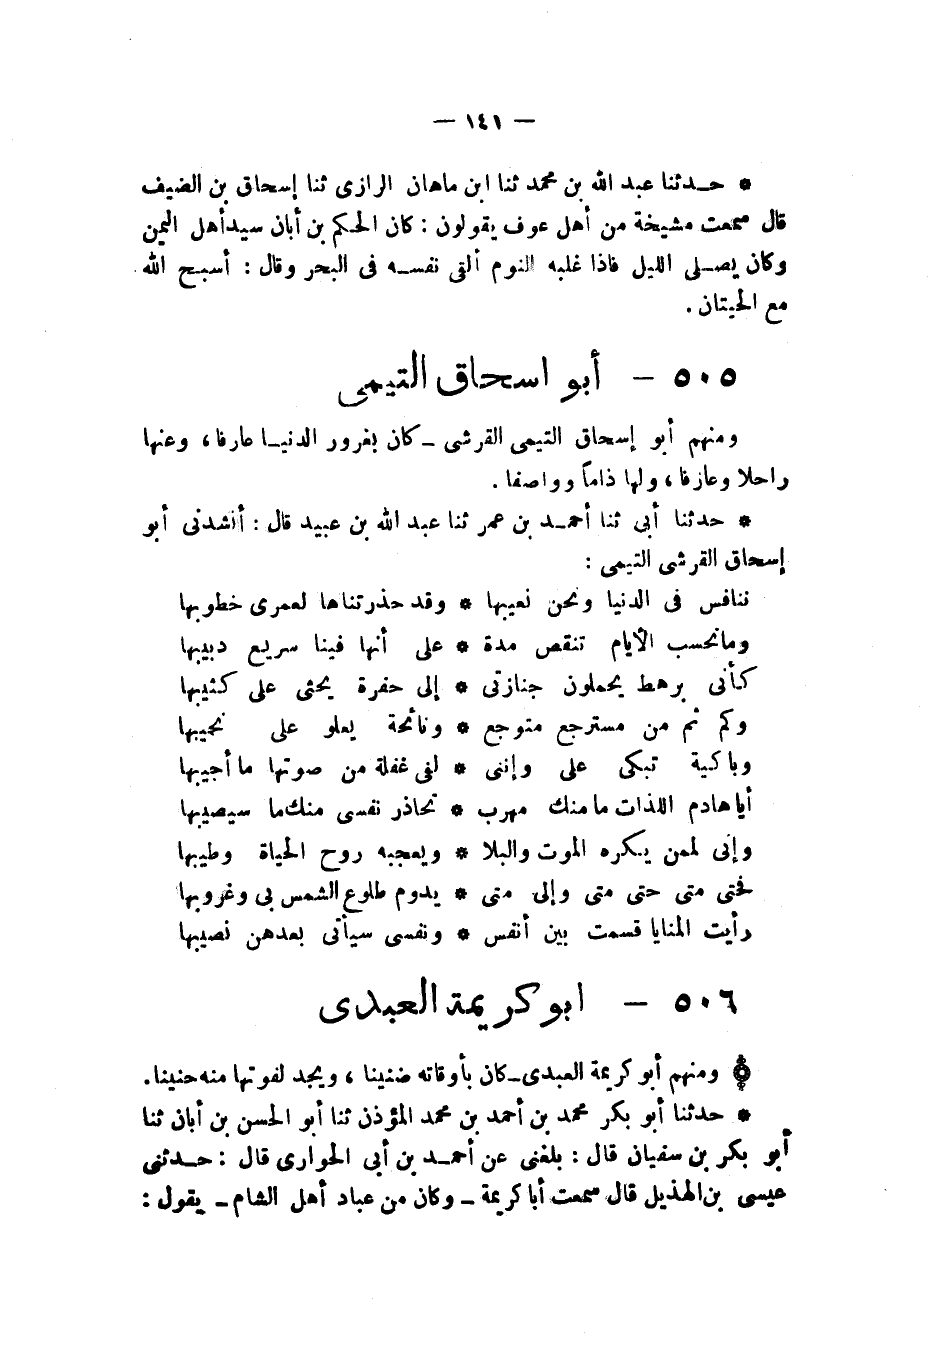 — ١٤١ —
* حـدثنا عبد الله بن محمد ثنا ابن ماهان الرازى ثنا إسحاق بن الضيف
قال سمعت مشيخة من أهل عوف يقولون : كان الحكم بن أبان سيدأهل اليمن
وكان يصـلى الليل فاذا غلبه النوم ألقى نفسـه فى البحر وقال : أسبح الله
مع الحيتان .
٥٠٥ - أبو اسحاق التيمى
ومنهم أبو إسحاق التيمى القرشى ـ كان بغرور الدنيـا عارفا ، وعنها
راحلا وعازفا ، ولها ذاماً وواصفا .
* حدثنا أبى ثنا أحمـد بن عمر ثنا عبد الله بن عبيد قال : أنشدنى أبو
إسحاق القرشى التيمى :
ننافس فى الدنيا ونحن نعيبها * وقد حذرتناها لعمرى خطوبها
ومانحسب الأيام تنقص مدة * على أنها فينا سريع دبيبها
كأنى برهط يحملون جنازتى * إلى حفرة يحثى على كثيبها
وكم ثم من مسترجع متوجع * ونائحة يعلو على نحيبها
وباكية تبكى على وإننى * لفى غفلة من صوتها ما أجيبها
أياهادم اللذات مامنك مهرب * تحاذر نفسى منك ما سيصيبها
وإنى لممن يكره الموت والبلا * ويعجبه روح الحياة وطيبها
فحتى متى حتى متى وإلى متى * يدوم طلوع الشمس بى وغروبها
رأيت المنايا قسمت بين أنفس * ونفسى سيأتى بعدهن نصيبها
٥٠٦ - ابو كريمة العبدى
ومنهم أبو كريمة العبدى ـ كان بأوقاته ضنينا ، ويجد لفوتها منه حنينا .
* حدثنا أبو بكر محمد بن أحمد بن محمد المؤذن ثنا أبو الحسن بن أبان ثنا
أبو بكر بن سفيان قال : بلغنى عن أحمـد بن أبى الحوارى قال : حـدثنى
عيسى بن الهذيل قال سمعت أبا كريمة ـ وكان من عباد أهل الشام ـ يقول :